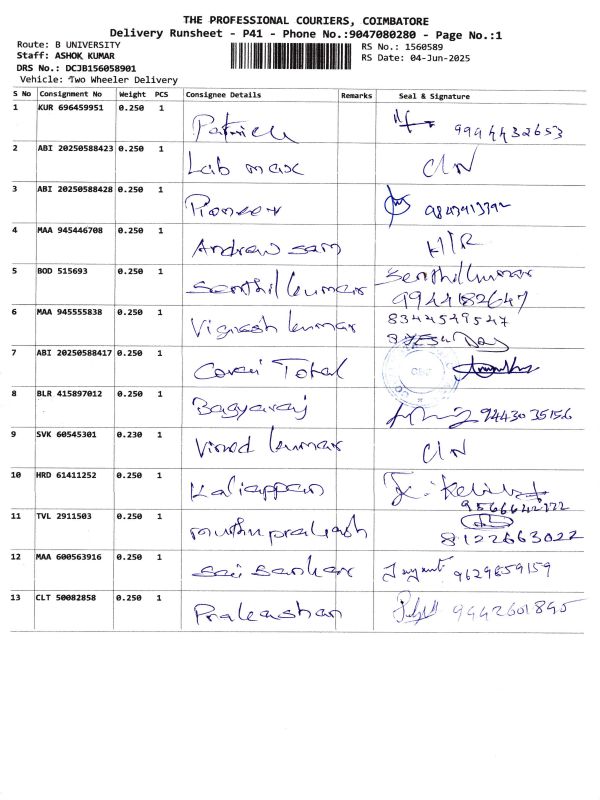 THE PROFESSIONAL COURIERS, COIMBATORE
Delivery Runsheet - P41 - Phone No.:9047080280 - Page No.:1
Route: B UNIVERSITY
RS No.: 1560589
Staff: ASHOK KUMAR
RS Date: 04-Jun-2025
DRS No.: DCJB156058901
Vehicle: Two Wheeler Delivery
S No Consignment No Weight PCS Consignee Details Remarks Seal & Signature
1 KUR 696459951 0.250 1
Patrick 9994432653
2 ABI 20250588423 0.250 1
Lab max C/N
3 ABI 20250588428 0.250 1
Pioneer
4 MAA 945446708 0.250 1
Andrew sam
5 BOD 515693 0.250 1 Senthilkumar
Senthil kumar 9944182647
6 MAA 945555838 0.250 1 8344549547
Vignesh kumar
7 ABI 20250588417 0.250 1
Covai Total
8 BLR 415897012 0.250 1
Bagyaraj 9443035156
9 SVK 60545301 0.230 1
Vinod kumar C/N
10 HRD 61411252 0.250 1
Kaliappan
11 TVL 2911503 0.250 1
muthuprakash 8122663022
12 MAA 600563916 0.250 1
Sai Sankar 9629859159
13 CLT 50082858 0.250 1
Prakashan 9442601895